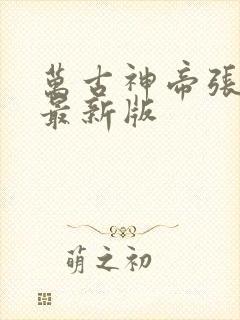 萬古神帝張
最新版
萌之初